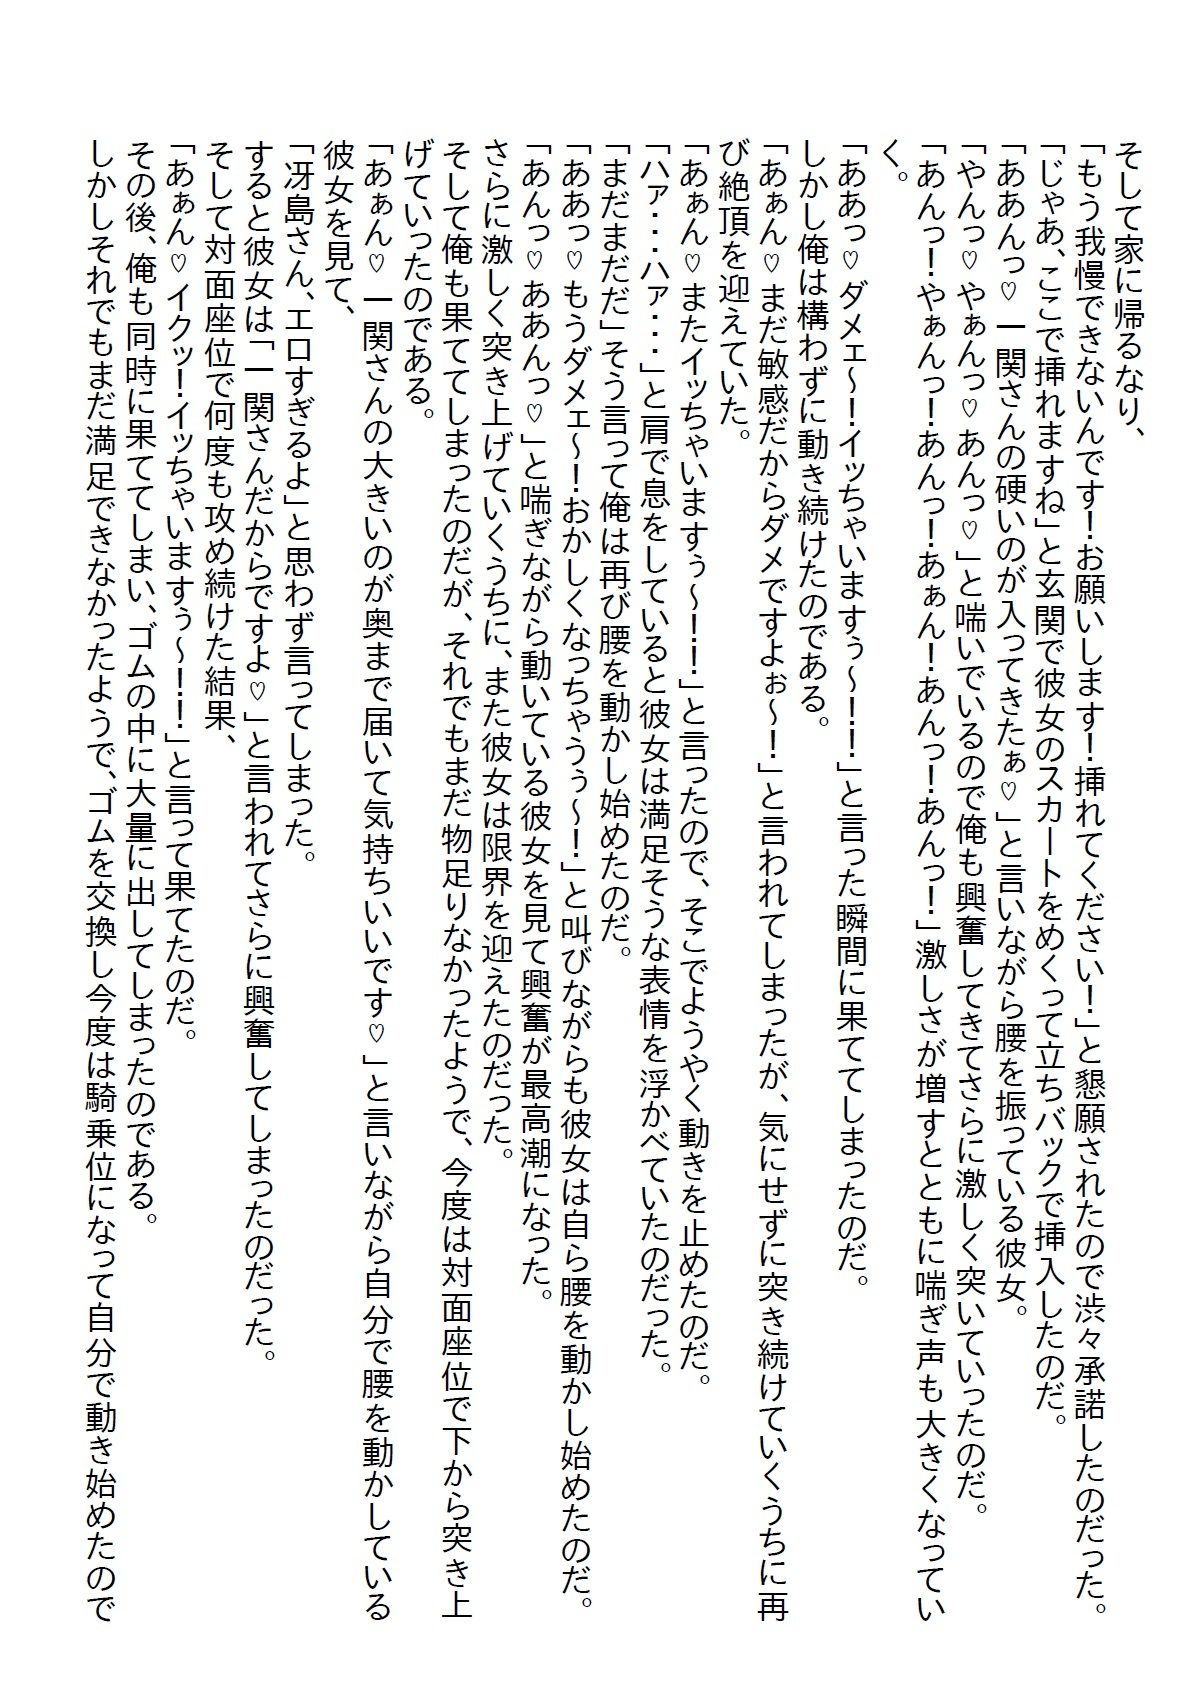 そして家に帰るなり、
「もう我慢できないんです！お願いします！挿れてください！」と懇願されたので渋々承諾したのだった。
「じゃあ、ここで挿れますね」と玄関で彼女のスカートをめくって立ちバックで挿入したのだ。
「ああんっ♡一関さんの硬いのが入ってきたぁ♡」と言いながら腰を振っている彼女。
「やんっ♡やぁんっ♡あんっ♡」と喘いでいるので俺も興奮してきてさらに激しく突いていったのだ。
「あんっ！やぁんっ！あんっ！あぁん！あんっ！あんっ！」激しさが増すとともに喘ぎ声も大きくなってい
く。
「ああっ♡ダメェ～！イッちゃいますぅ～！！」と言った瞬間に果ててしまったのだ。
しかし俺は構わずに動き続けたのである。
「あぁん♡まだ敏感だからダメですよぉ～！」と言われてしまったが、気にせずに突き続けていくうちに再
び絶頂を迎えていた。
「あぁん♡またイッちゃいますぅ～！！」と言ったので、そこでようやく動きを止めたのだ。
「ハァ・・・ハァ・・・」と肩で息をしていると彼女は満足そうな表情を浮かべていたのだった。
「まだまだだ」そう言って俺は再び腰を動かし始めたのだ。
「ああっ♡もうダメェ～！おかしくなっちゃうぅ～！」と叫びながらも彼女は自ら腰を動かし始めたのだ。
「あんっ♡ああんっ♡」と喘ぎながら動いている彼女を見て興奮が最高潮になった。
さらに激しく突き上げていくうちに、また彼女は限界を迎えたのだった。
そして俺も果ててしまったのだが、それでもまだ物足りなかったようで、今度は対面座位で下から突き上
げていったのである。
「あぁん♡一関さんの大きいのが奥まで届いて気持ちいいです♡」と言いながら自分で腰を動かしている
彼女を見て、
「冴島さん、エロすぎるよ」と思わず言ってしまった。
すると彼女は「一関さんだからですよ♡」と言われてさらに興奮してしまったのだった。
そして対面座位で何度も攻め続けた結果、
「あぁん♡イクッ！イッちゃいますぅ～！！」と言って果てたのだ。
その後、俺も同時に果ててしまい、ゴムの中に大量に出してしまったのである。
しかしそれでもまだ満足できなかったようで、ゴムを交換し今度は騎乗位になって自分で動き始めたので